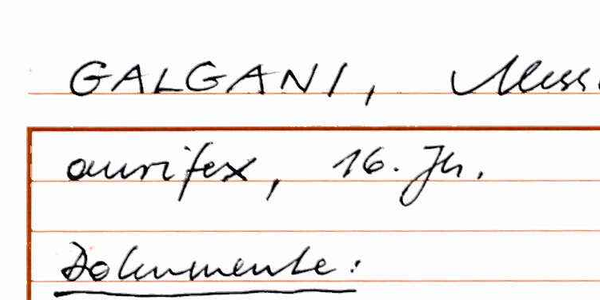 GALGANI,
aurifex, 16. Jh.
Dokumente: